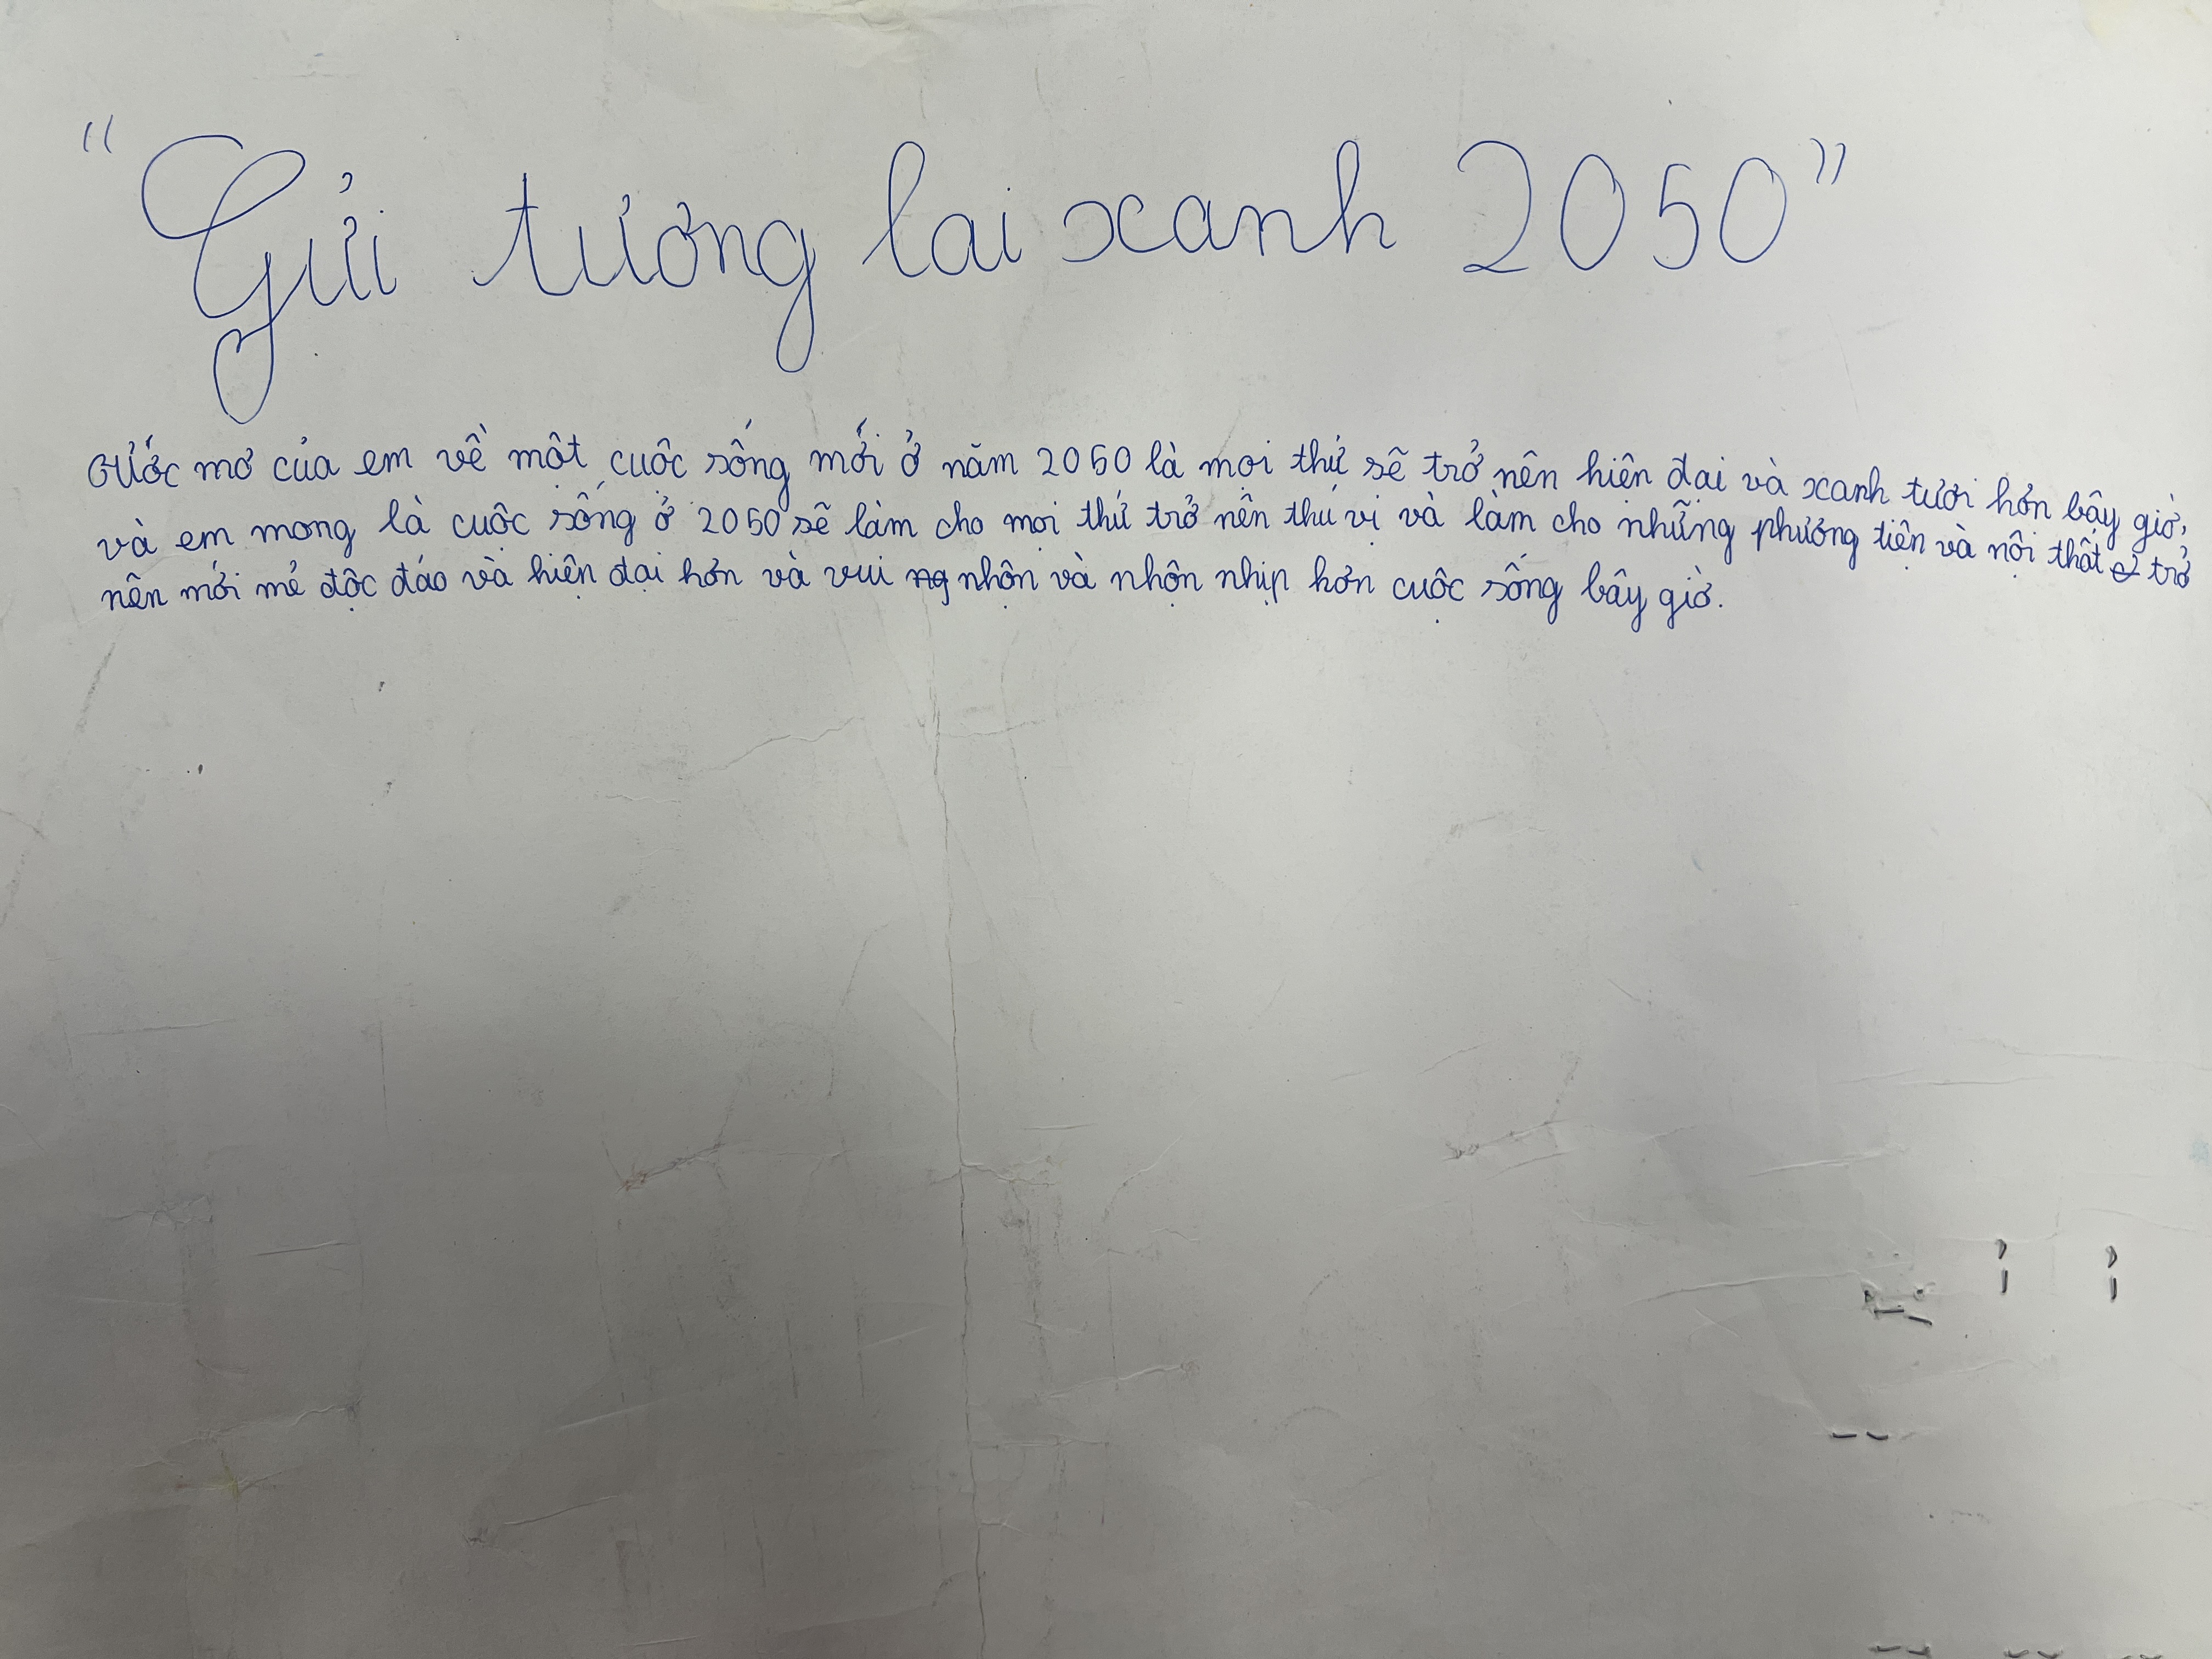 "Gửi tương lai xanh 2050"
Ước mơ của em về một cuộc sống mới ở năm 2050 là mọi thứ sẽ trở nên hiện đại và xanh tươi hơn bây giờ,
và em mong là cuộc sống ở 2050 sẽ làm cho mọi thứ trở nên thú vị và làm cho những phương tiện và nội thất trở
nên mới mẻ độc đáo và hiện đại hơn và vui nhộn và nhộn nhịp hơn cuộc sống bây giờ.